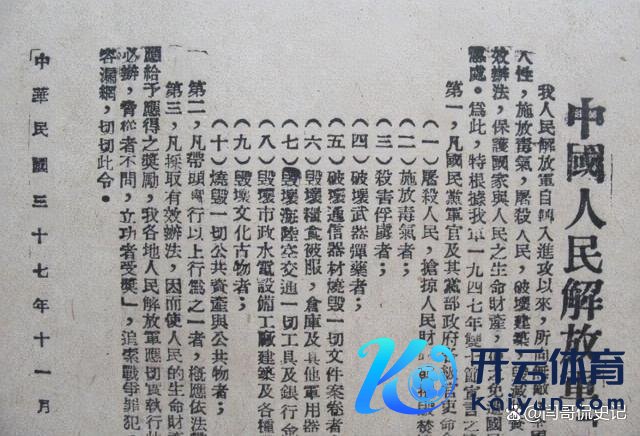 中國人民解放軍
我人民解放軍自轉入進攻以來，所向無敵
人性，施放毒氣，屠殺人民，破壞建築
效辦法，保護國家與人民之生命財產，
懲處。爲此，特根據我軍一九四七年雙十節宣言之
第一，凡國民黨軍官及其黨部政府各級官吏命令
（一）屠殺人民，搶掠人民財
（二）施放毒氣者；
（三）殺害俘虜者；
（四）破壞武器彈藥者；
（五）破壞通信器材燒毀一切文件案卷者
（六）毀壞糧食被服，倉庫及其他軍用器
（七）毀壞海陸空交通一切工具及銀行金
（八）毀壞市政水電設備工廠建築及各種
（九）毀壞文化古物者；
（十）燒毀一切公共資產與公共物者；
第二，凡帶頭實行以上行點之一者，概應依法
第三，凡採取有效辦法，因而使人民的生命財
應給予應得之獎勵，我各地人民解放軍應切實執行此
必辦，脅從者不問，立功者受獎」，追索戰爭罪犯
容漏網，切切此令。
中華民國三十七年十一月
开云体育
@闫哥侃史记